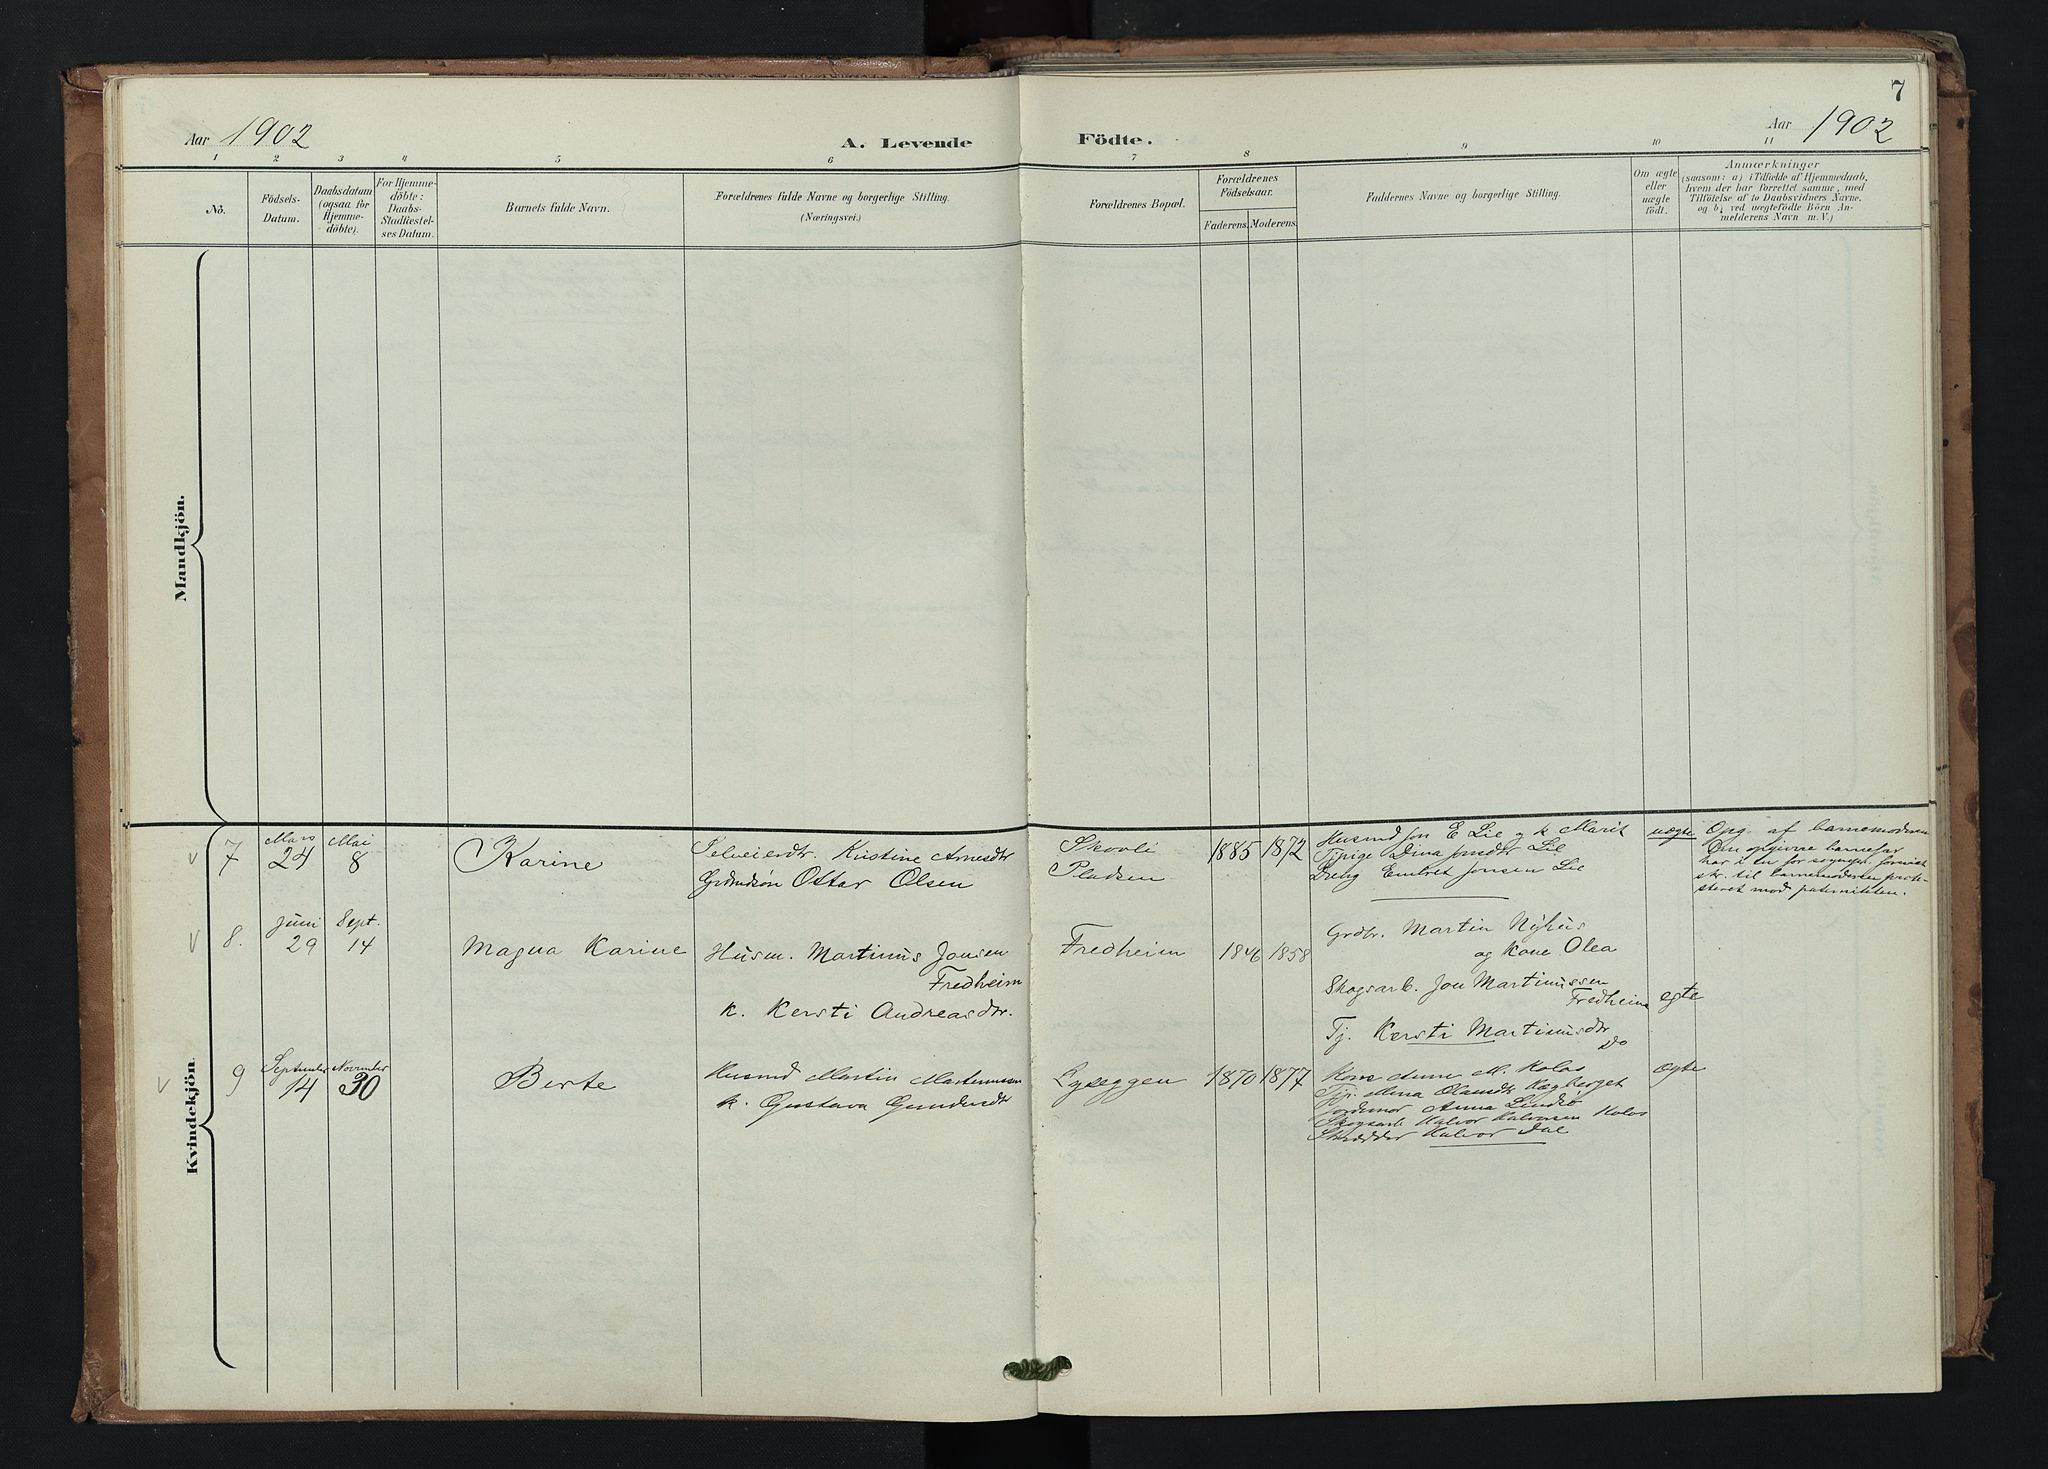 7
Aar 1902
A. Levende Födte.
Aar 1902
1 2 3 4 5 6 7 8 9 10 11
No.
Födsels-
Datum.
Daabsdatum
(ogsaa for
Hjemme-
döbte).
For Hjemme-
döbte:
Daabs-
Stadfæstel-
ses Datum.
Barnets fulde Navn.
Forældrenes fulde Navne og borgerlige Stilling.
(Næringsvei.)
Forældrenes Bopæl.
Forældrenes
Födselsaar.
Faderens. Moderens.
Faddernes Navne og borgerlige Stilling.
Om ægte
eller
uægte
født.
Anmærkninger
(saasom: a) i Tilfælde af Hjemmedaab,
hvem der har forrettet samme, med
Tilföielse af to Daabsvidners Navne.
og b) ved uægtefödte Börn An-
melderens Navn m. V.)
Mandkjön.
Kvindekjön.
7
Mars
24
Mai
8
Karine
Selveierdtr. Kristine Arnesdtr
Grdmdsøn Ottar Olsen
Skovli
Pladsen
1885 1872
Husmd Jon E Lie og k Marit
Tjpige Dina Jonsdtr Lie
Dreng Embret Jonsen Lie
uægte
Opg. af barnemoderen
Den opgivne barnefar
har i
str. til barnemoderen prote-
steret mod paterniteten.
8.
Juni
29
Sept.
14
Magna Karine
Husm. Martinus Jonsen
Fredheim
k. Kersti Andreasdtr.
Fredheim
1846 1858
Grdbr. Martin Nyhus
og kone Olea
Skogsarb. Jon Martinussen
Fredheim
Tj. Kersti Martinusdtr
Do
egte
9
September
14
November
30
Berte
Husmd Martin Martinussen
k. Gustava Gundersdtr
Lyseggen
1870 1877
Kone Anne M. Kolos
Tjp. Mina Olausdtr Kægberget
Jordemor Anna Lindsö
Skogsarb Halvor Halvorsen Kolos
Skrædder Halvor Dal
egte